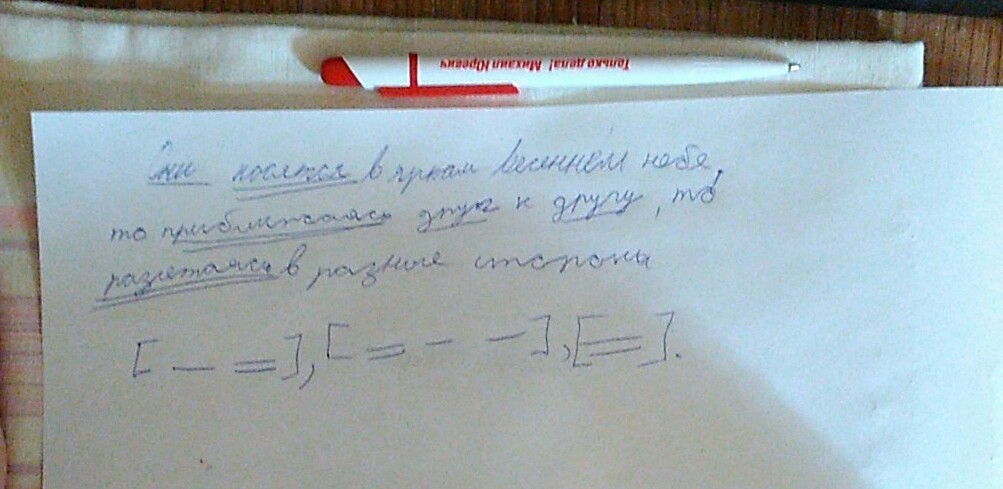 Только дела! Михаил Юревич
Они носятся в ярком весеннем небе,
то приближаясь друг к другу, то
разлетаясь в разные стороны
[ — = ], [ = - - ], [ = ].